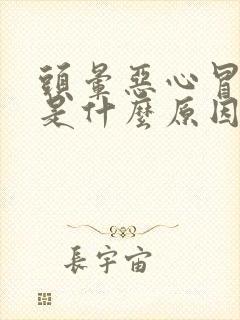 頭暈惡心冒
是什麼原因
長宇宙